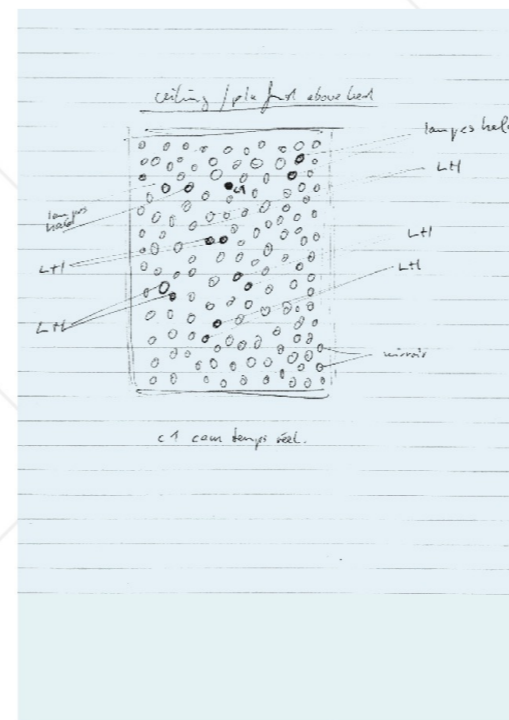 ceiling / plafond above bed
lampes halo
LH
lampes
LH
LH
LH
LH
miroir
c1 cam temps réel.
c1